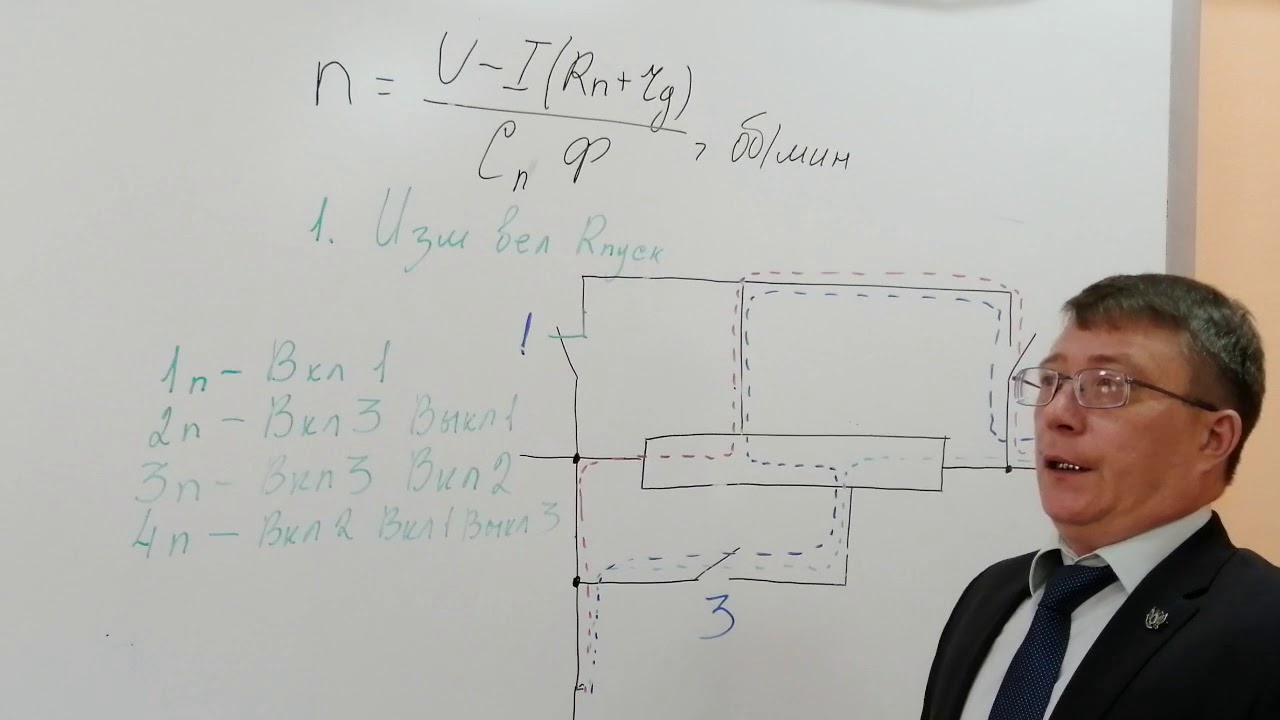 n = U - I(Rп + rд) / Cп Ф, об/мин
1. Изм вел Rпуск
1п - Вкл 1
2п - Вкл 3 Выкл 1
3п - Вкл 3 Вкл 2
4п - Вкл 2 Вкл 1 Выкл 3
1
3